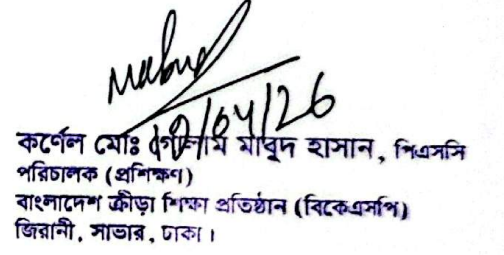 Mabud
12/04/26
কর্ণেল মোঃ গোলাম মাবুদ হাসান, পিএসসি
পরিচালক (প্রশিক্ষণ)
বাংলাদেশ ক্রীড়া শিক্ষা প্রতিষ্ঠান (বিকেএসপি)
জিরানী, সাভার, ঢাকা।